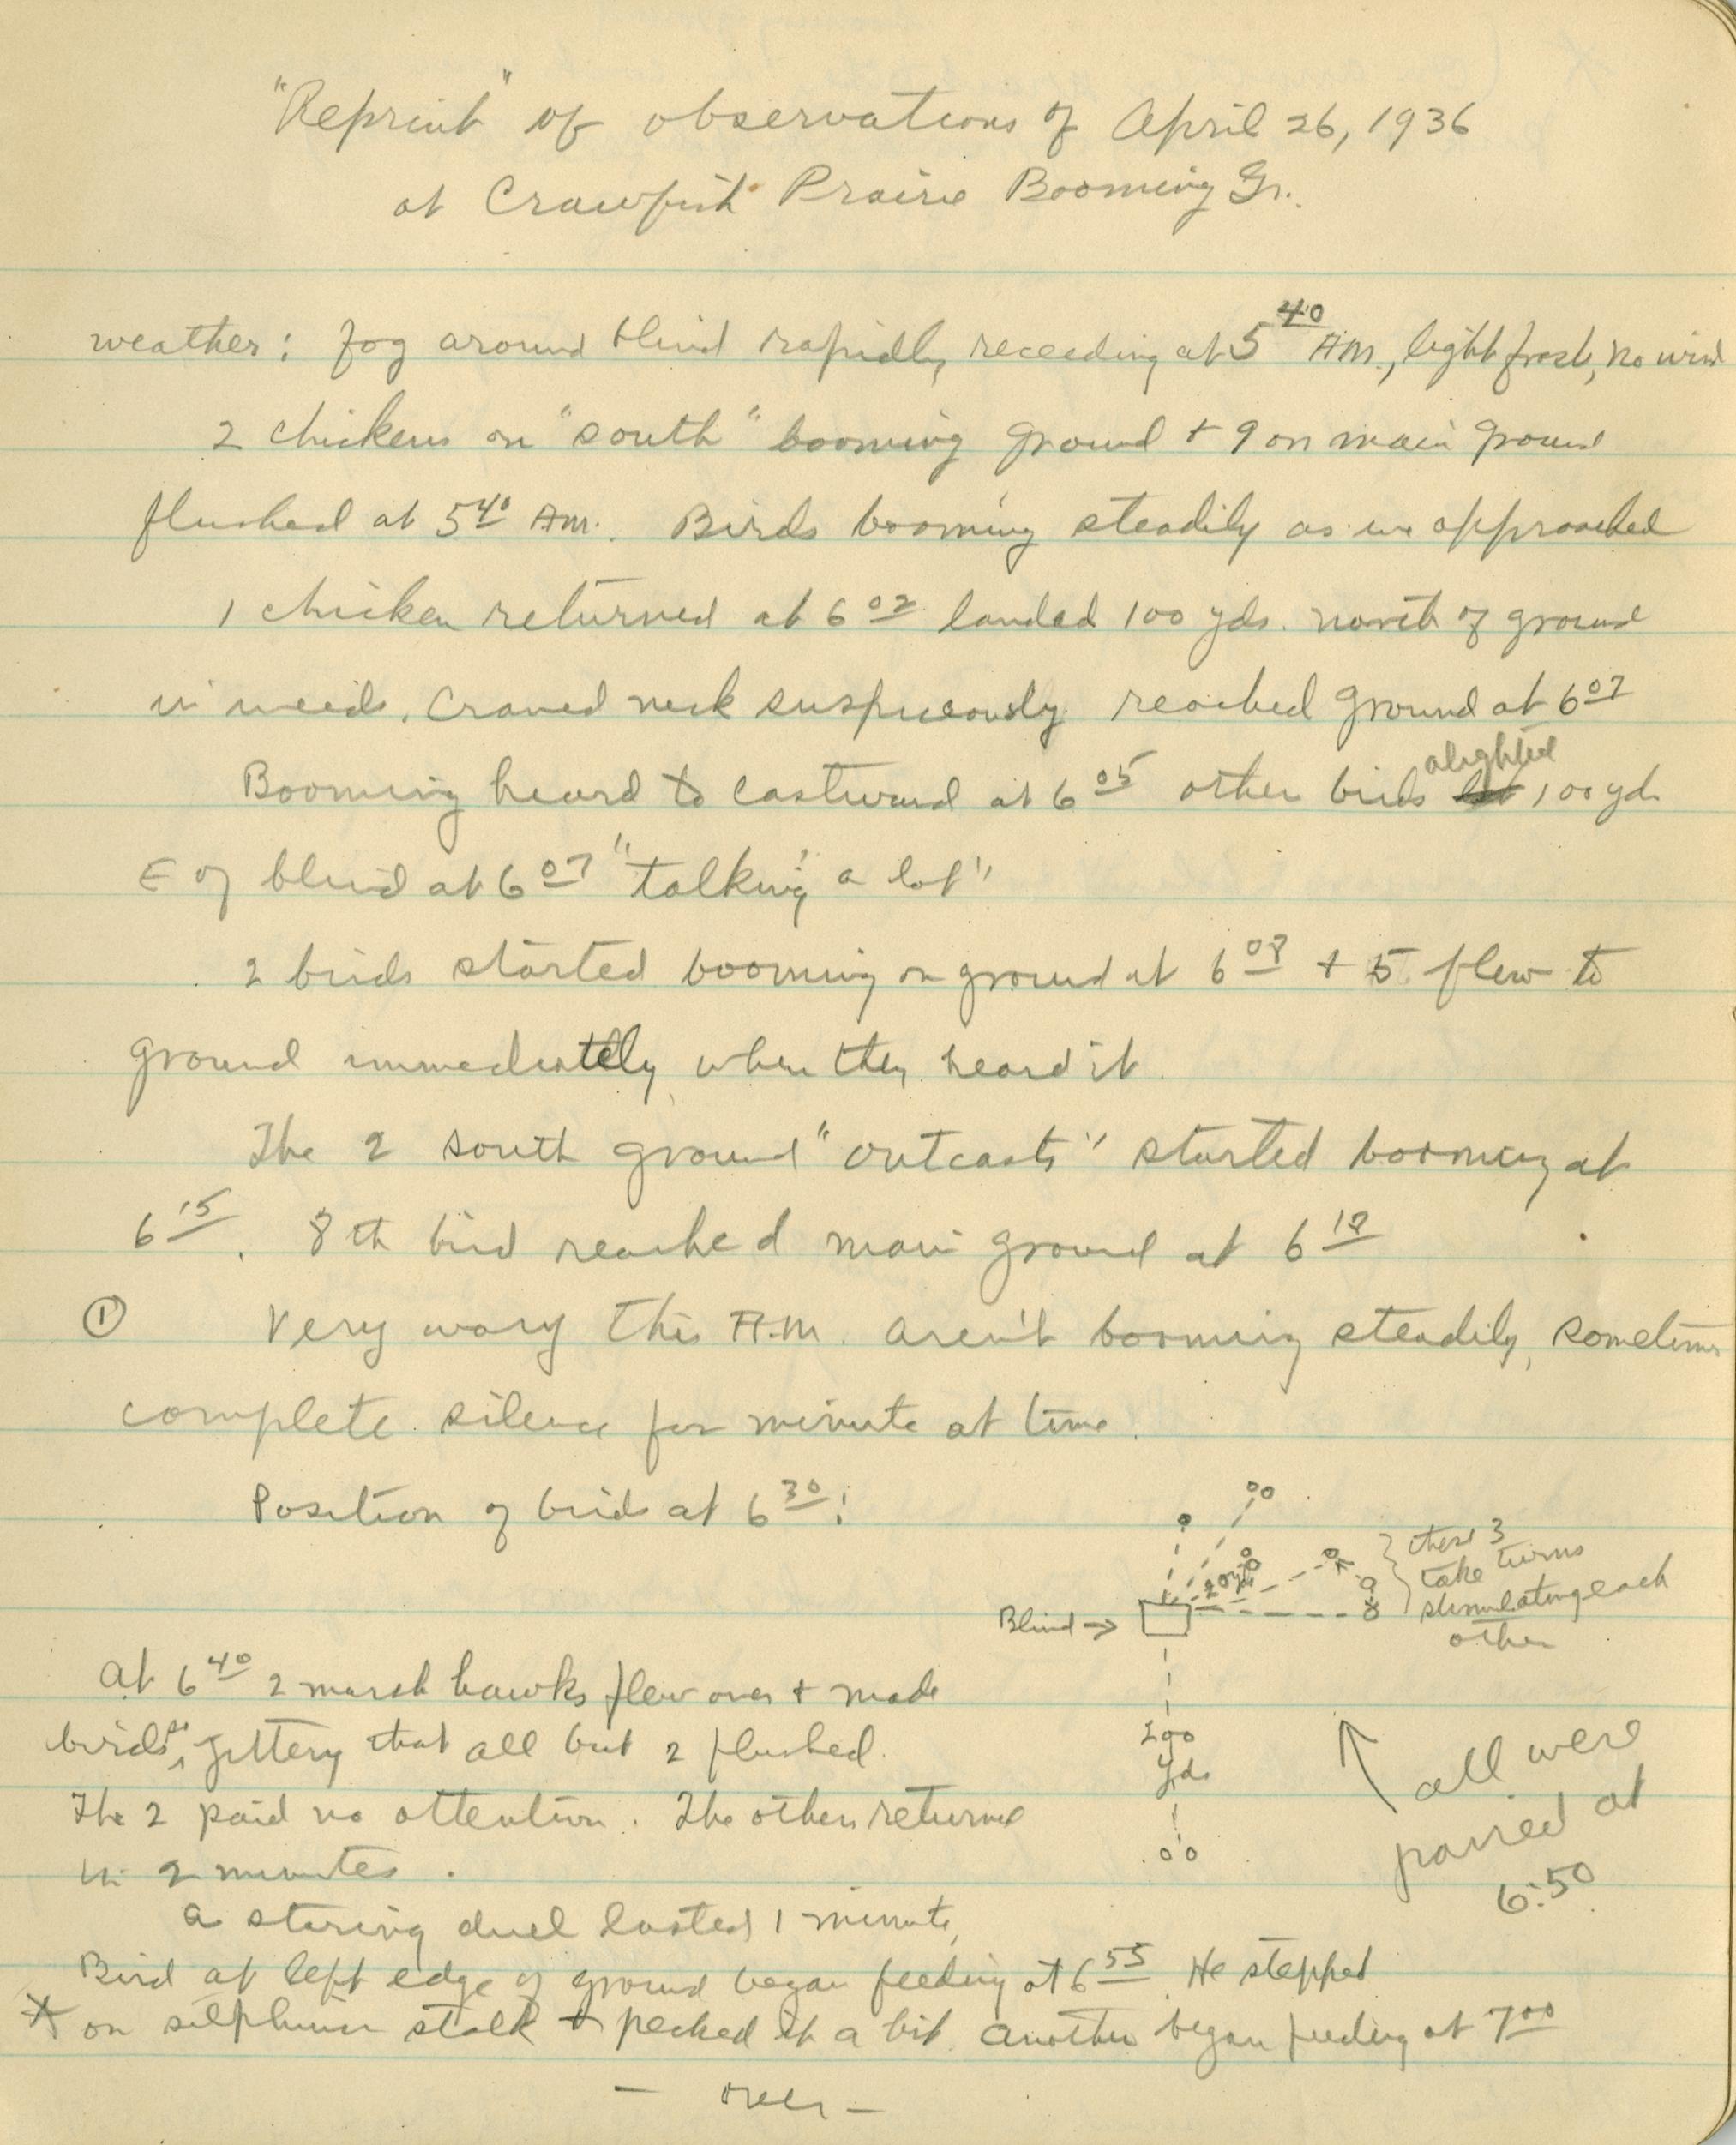 "Reprint" of observations of April 26, 1936
at Crawfish Prairie Booming Gr.
weather: fog around blind rapidly receeding at 5 40 A.M., light frost, no wind
2 chickens on "south" booming ground + 9 on main ground
flushed at 5 40 A.M. Birds booming steadily as we approached
1 chicken returned at 6 02 landed 100 yds. north of ground
in weeds. Craned neck suspiciously reached ground at 6 07
Booming heard to eastward at 6 05 other birds alighted 100 yds
E of blind at 6 07 "talking a lot"
2 birds started booming on ground at 6 08 + 5 flew to
ground immediately when they heard it.
The 2 south ground "outcasts" started booming at
6 15. 8th bird reached main ground at 6 18
① Very wary this A.M. aren't booming steadily, sometimes
complete silence for minute at time.
Position of birds at 6 30:
20 yds
these 3
take turns
stimulating each
other
Blind →
200
yds
all were
paired at
6:50
At 6 40 2 marsh hawks flew over + made
birds so jittery that all but 2 flushed.
The 2 paid no attention. The others returned
in 2 minutes.
a staring duel lasted 1 minute,
Bird at left edge of ground began feeding at 6 55. He stepped
* on silphium stalk + pecked it a bit. Another began feeding at 7 00
- over -